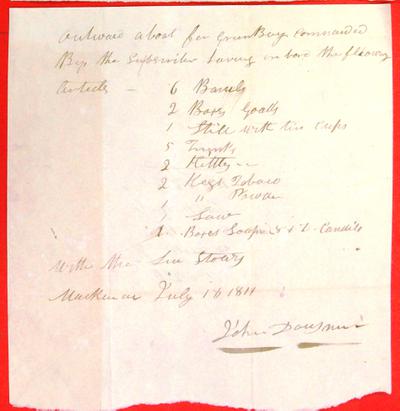 outward a boat for Green Bay Commanded
By the Subscriber having on bord the flowing
Articls — 6 Barrels
2 Boxes Goods
1 Still with two Cups
5 Trunks
2 Kettles
2 Kegs Tobaco
1 " Powder
1 Saw
1 Boxes Soap & 1 Do Candils
With the Sea Stours
Mackinac July 16 1811
John Dousman